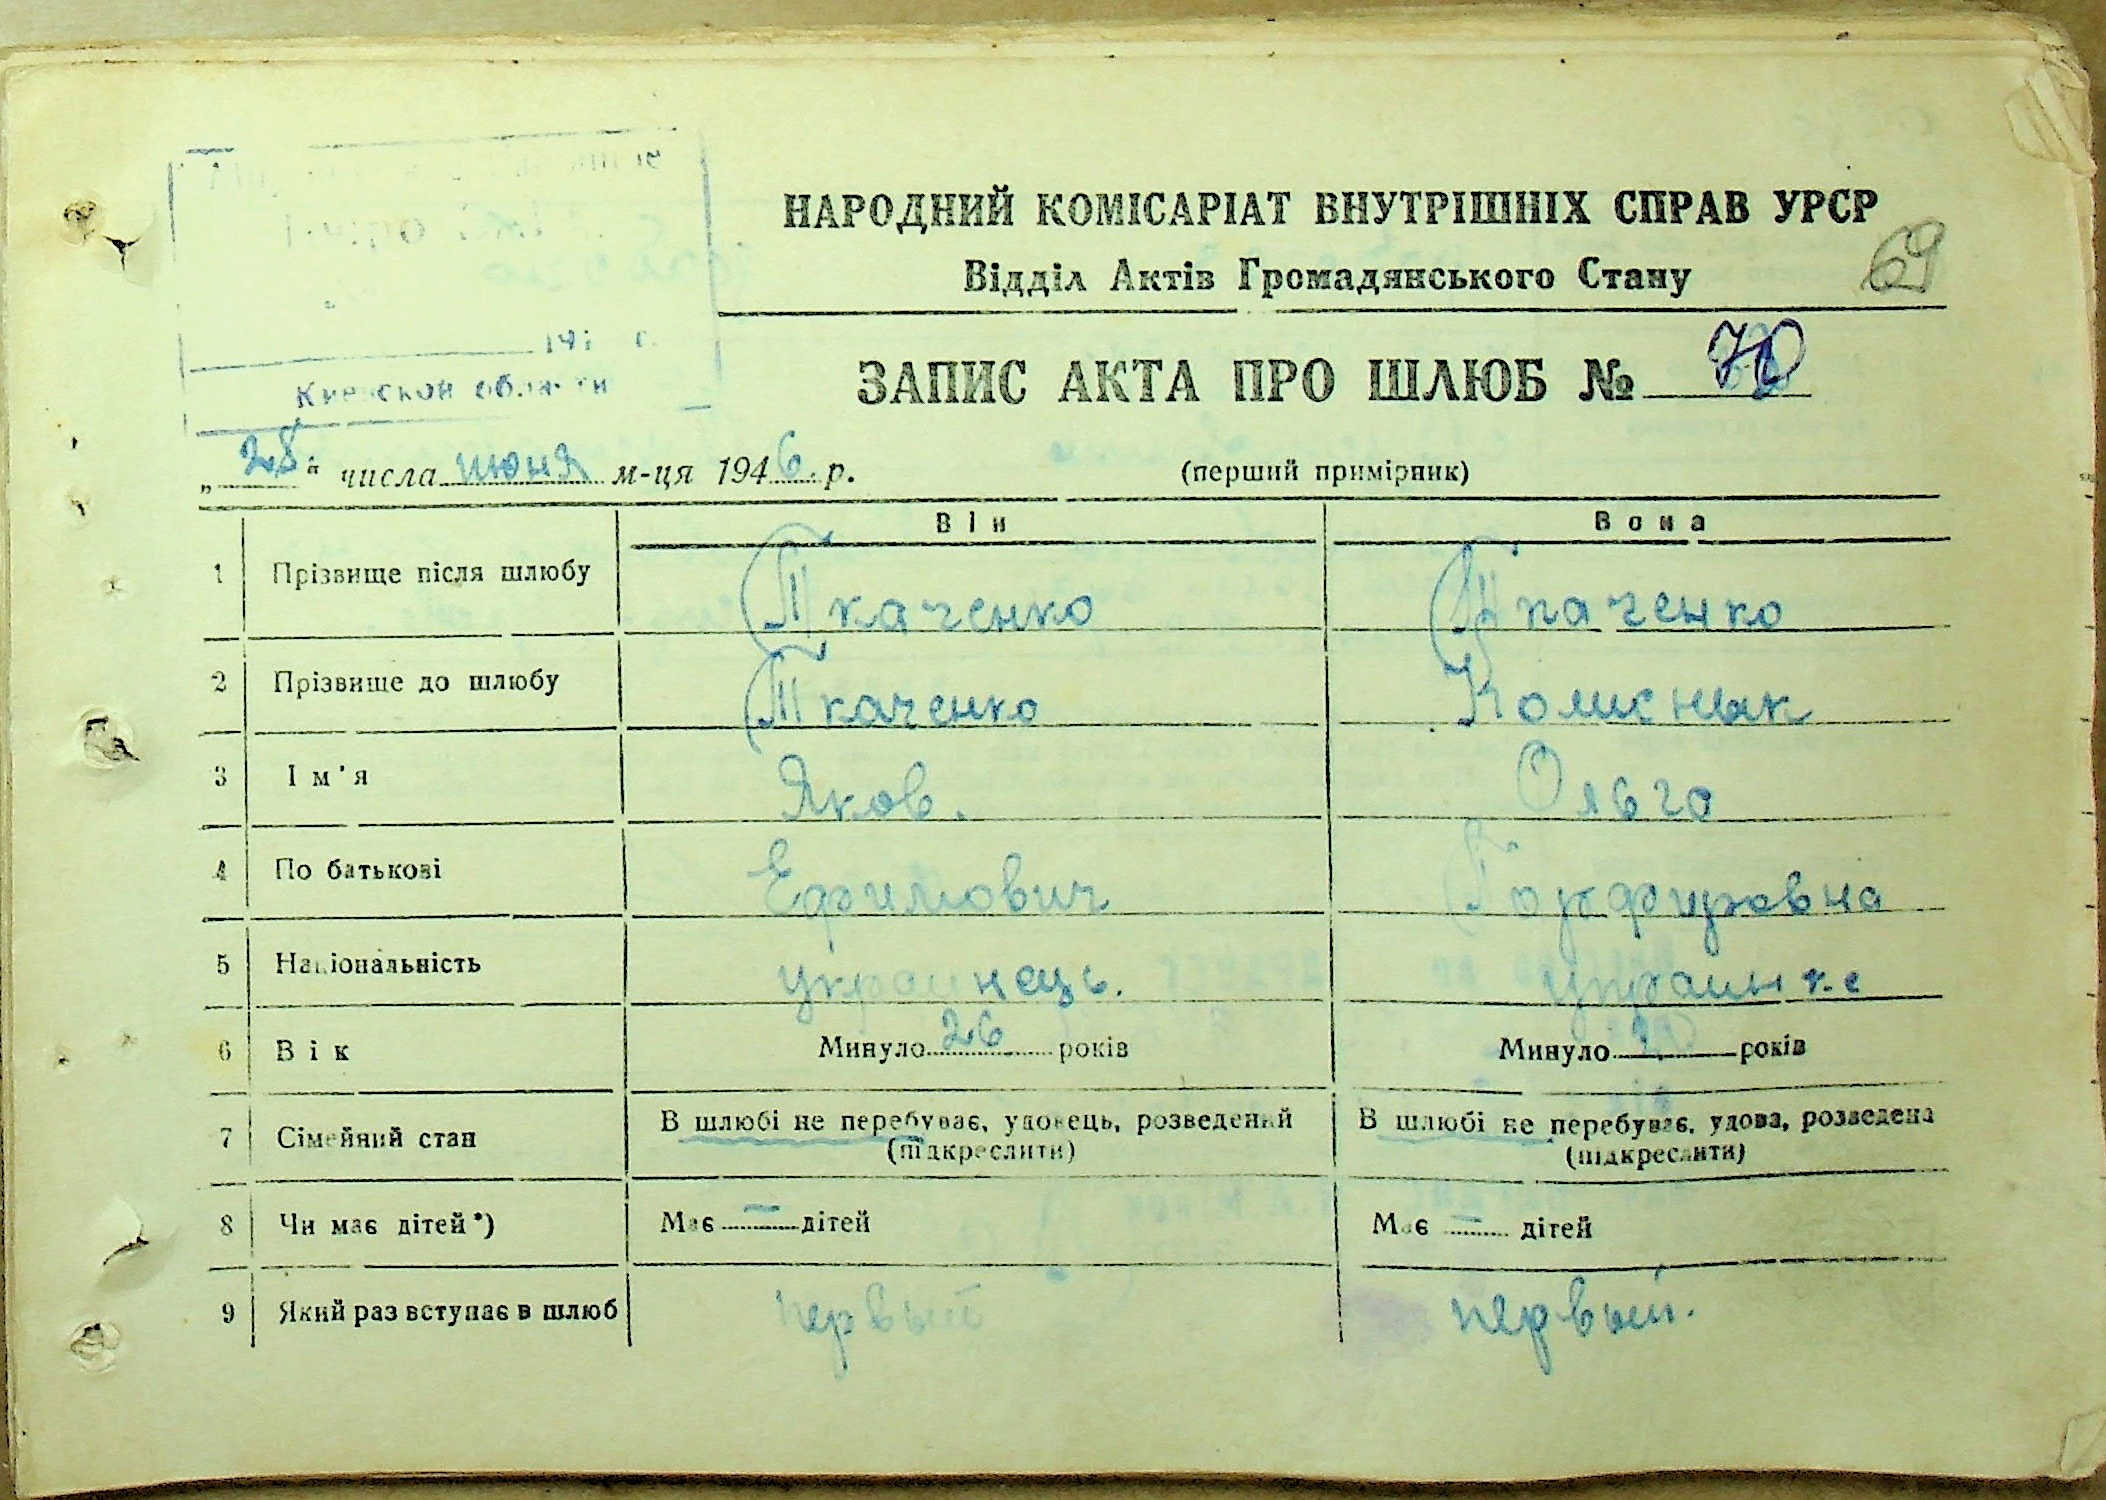 НАРОДНИЙ КОМІСАРІАТ ВНУТРІШНІХ СПРАВ УРСР
Відділ Актів Громадянського Стану
69
ЗАПИС АКТА ПРО ШЛЮБ № 70
Киевской области
„28“ числа июня м-ця 1946 р. (перший примірник)
Він Вона
1 Прізвище після шлюбу Ткаченко Ткаченко
2 Прізвище до шлюбу Ткаченко Колисник
3 Ім'я Яков. Ольга
4 По батькові Ефимович
5 Національність украинець. украинка
6 Вік Минуло 26 років Минуло років
7 Сімейний стан В шлюбі не перебуває, удовець, розведений В шлюбі не перебуває, удова, розведена
(підкреслити) (підкреслити)
8 Чи має дітей*) Має — дітей Має — дітей
9 Який раз вступає в шлюб первый первый.